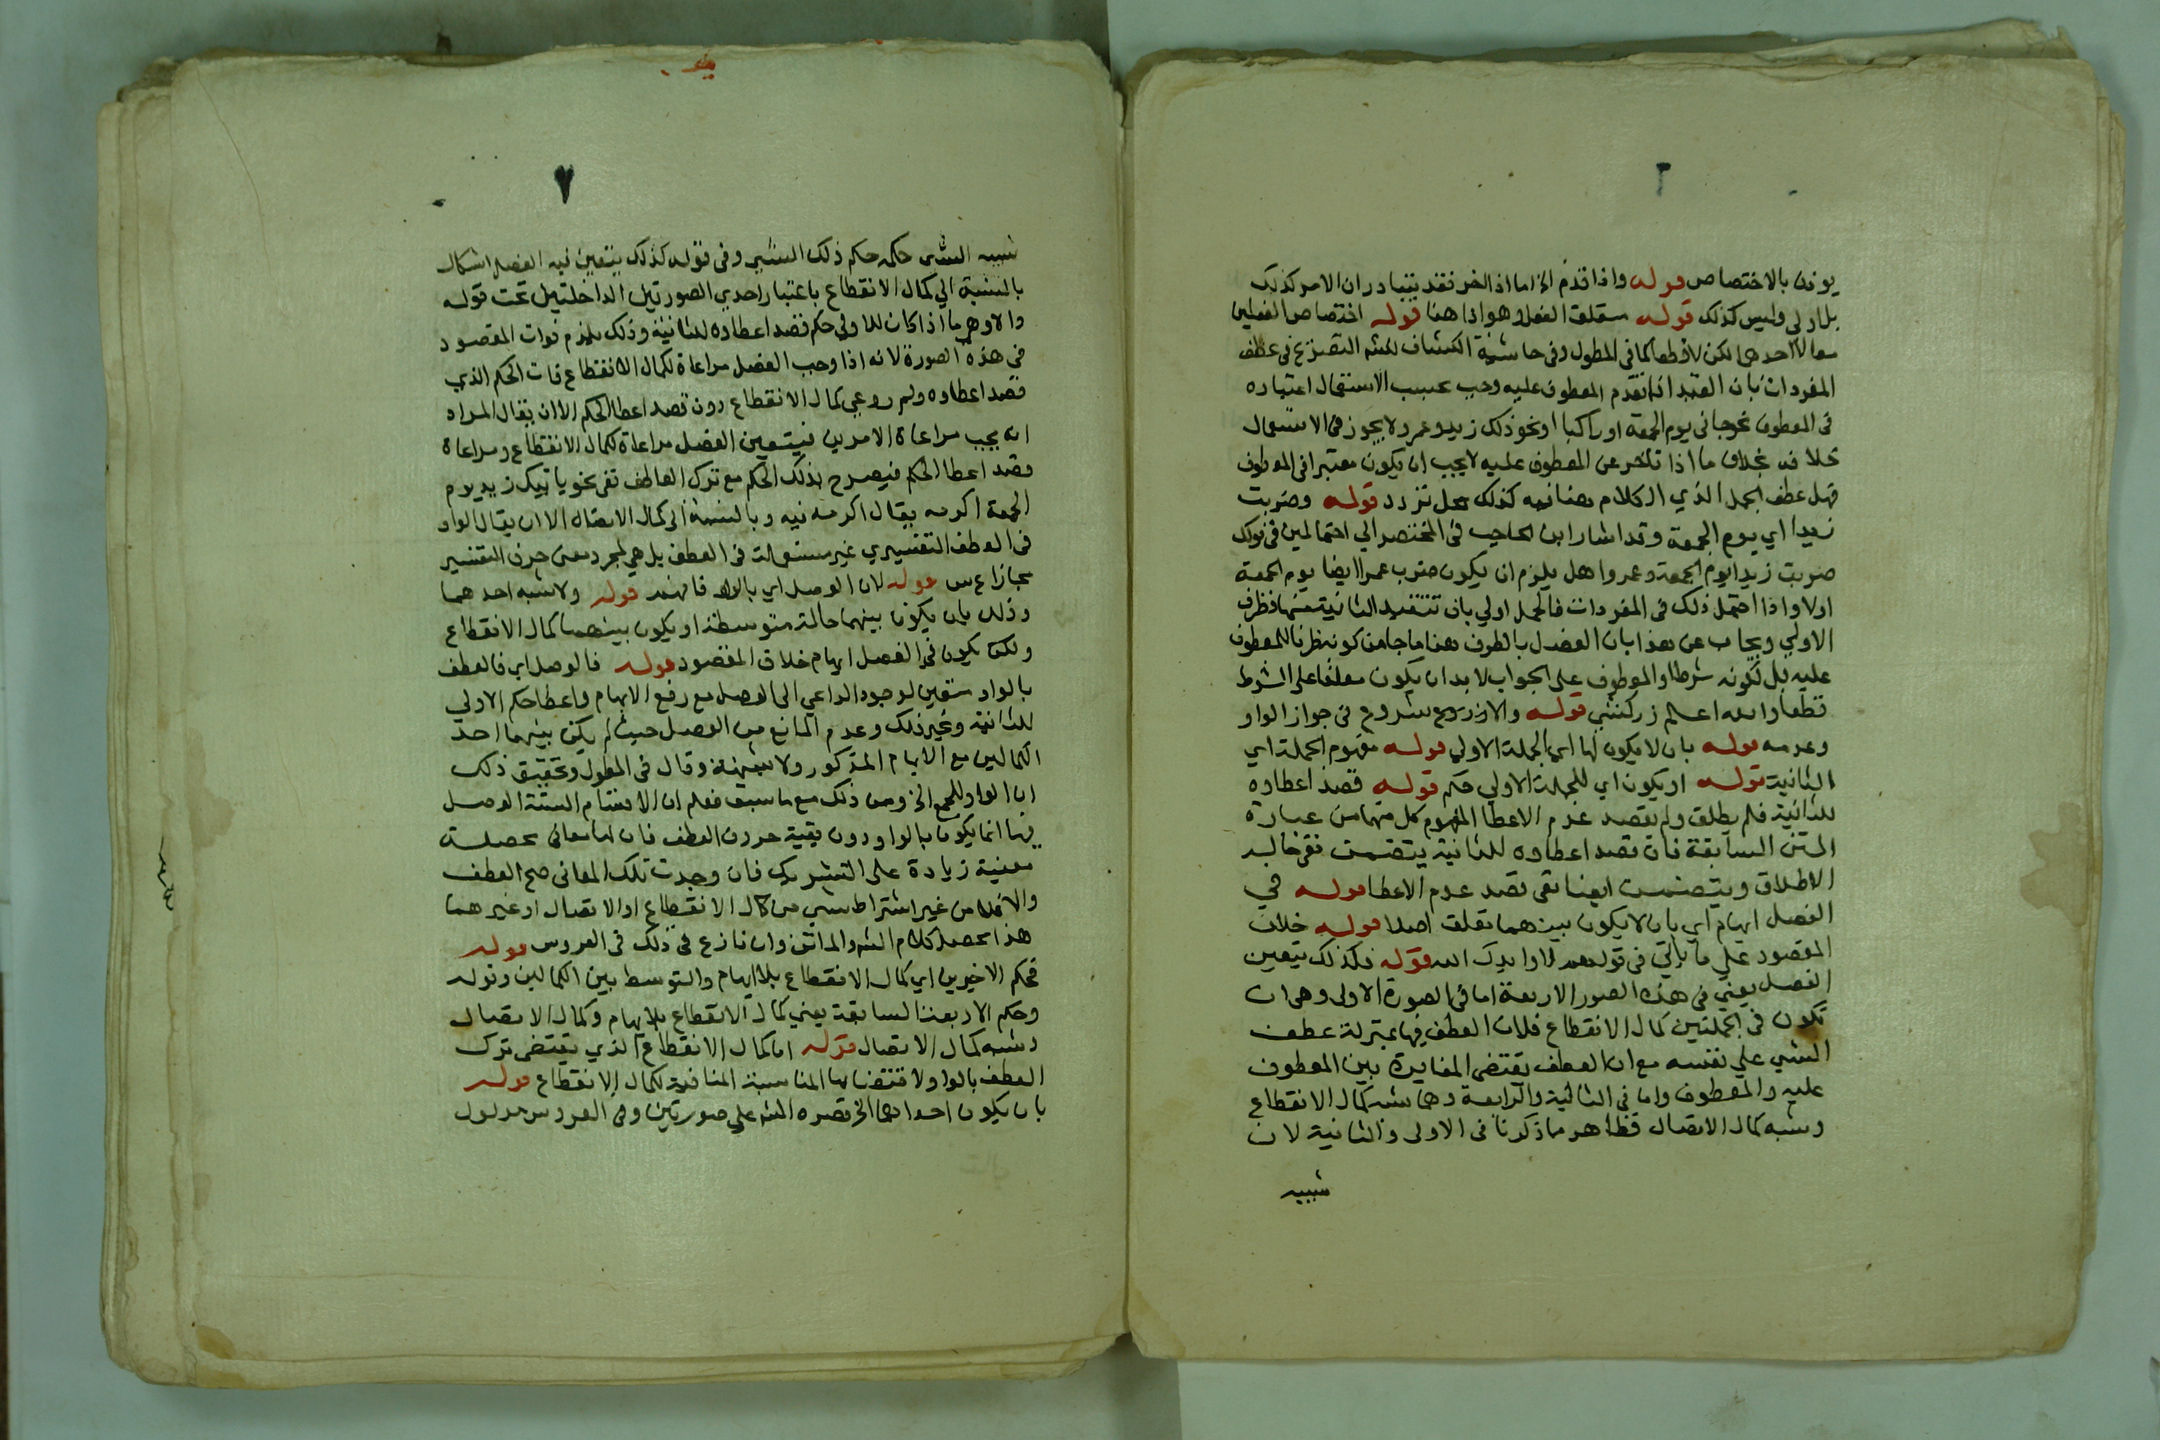 ٢
يوذن بالاختصاص قوله واذا قدم الخ اما اذا اخر فقد يتبادر ان الامر كذلك
بالاولي وليس كذلك قوله متعلق الفعل وهو اذا هنا قوله اختصاص الفعلين
لكن لا قطعا كما في المطول وفي حاشية الكشاف للشه التصريح في عطف
المفردات بان القيد اذا تقدم المعطوف عليه وجب بحسب الاستعمال اعتباره
في المعطوف نحو جاني يوم الجمعة او راكبا او نحو ذلك زيد وعمر ولا يجوز في الاستعمال
خلافه بخلاف ما اذا تاخر عن المعطوف عليه لا يجب ان يكون معتبرا في المعطوف
فهل عطف الجمل الذي الكلام هنا فيه كذلك محل تردد قوله وضربت
زيدا اي يوم الجمعة وقد اشار ابن الحاجب في المختصر الي احتمالين في قولك
ضربت زيدا يوم الجمعة وعمروا هل يلزم ان يكون ضرب عمرا ايضا يوم الجمعة
اولا واذا احتمل ذلك في المفردات فالجمل اولي بان تتقيد الثانية منها بظرف
الاولي ويجاب عن هذا بان الفصل بالظرف هنا ما جا من كونه ظرفا للمعطوف
عليه بل لكونه شرطا والمعطوف علي الجواب لا بد ان يكون معلقا علي الشرط
قطعا والله اعلم زركشي قوله والا شروع في جواز الواو
وعدمه قوله بان لا يكون لها اي الجملة الاولي قوله مفهوم الجملة اي
الثانية قوله او يكون اي للجملة الاولي حكم قوله قصد اعطاوه
للثانية فلم يطلق ولم يقصد عدم الاعطا المفهوم كل منهما من عبارة
المتن السابقة فان قصد اعطاوه للثانية يتضمن نفي
الاطلاق ويتضمن ايضا نفي قصد عدم الاعطا قوله في
الفصل ايهام اي بان لا يكون بينهما تعلق اصلا قوله خلاف
المقصود علي ما ياتي في قولهم لا وايدك الله قوله فكذلك يتعين
الفصل يعني في هذه الصور الاربعة اما في الصورة الاولي وهي ان
تكون في الجملتين كمال الانقطاع فلان العطف فيها بمنزلة عطف
الشي علي نفسه مع ان العطف يقتضي المغايرة بين المعطوف
عليه والمعطوف واما في الثالثة والرابعة وهما شبه كمال الانقطاع
وشبه كمال الاتصال فظاهر مما ذكرنا في الاولي والثانية لان
شبيه
٧
شبيه الشي حكمه حكم ذلك الشي وفي قوله كذلك يتعين فيه الفصل اشكال
بالنسبة الي كمال الانقطاع باعتبار احدي الصورتين الداخلتين تحت قوله
والا وهي ما اذا كان للاولي حكم قصد اعطاوه للثانية وذلك يلزم فوات المقصود
في هذه الصورة لانه اذا وجب الفصل مراعاة لكمال الانقطاع فات الحكم الذي
قصد اعطاوه ولم روعي كمال الانقطاع دون قصد اعطا الحكم الا ان يقال المراد
انه يجب مراعاة الامرين فيتعين الفصل مراعاة لكمال الانقطاع ومراعاة
قصد اعطا الحكم فيصرح بذلك الحكم مع ترك العاطف ففي نحو ياتيك زيد يوم
الجمعة اكرمه يقال اكرمه فيه وبالنسبة الي كمال الاتصال الا ان يقال الواو
في العطف التفسيري غير مستعملة في العطف بل هي لمجرد معني حرف التفسير
مجازا ع س قوله لان الوصل اي بالواو فافهم قوله ولا شبه احدهما
وذلك بان يكون بينهما حالة متوسطة او يكون بينهما كمال الانقطاع
ولكن يكون في الفصل ايهام خلاف المقصود قوله فالوصل اي فالعطف
بالواو متعين لوجود الداعي الي الوصل مع رفع الايهام واعطا حكم الاولي
للثانية وغير ذلك وعدم المانع من الوصل حيث لم يكن بينهما احد
الكمالين مع الايهام المذكور ولا شبهه وقال في المطول وتحقيق ذلك
ان الواو للجمع الخ ومن ذلك مع ما سبق فعلم ان الاقسام الستة الوصل
فيها انما يكون بالواو دون بقية حروف العطف فان لها معاني محصلة
معنية زيادة علي التشريك فان وجدت تلك المعاني صح العطف
والا فلا من غير اشتراط شي من كمال الانقطاع او الاتصال او غيرهما
هذا محصل كلام الشه والماتن وان نازع في ذلك في العروس قوله
فحكم الاخيرين اي كمال الانقطاع بلا ايهام والتوسط بين الكمالين وقوله
وحكم الاربعة السابقة يعني كمال الانقطاع بلا ايهام وكمال الاتصال
وشبه كمال الاتصال قوله اما كمال الانقطاع الذي يقتضي ترك
العطف بالواو لاقتضائها المناسبة المنافية لكمال الانقطاع قوله
بان يكون احداهما الخ قصره الشه علي صورتين وفي العروس مدلول